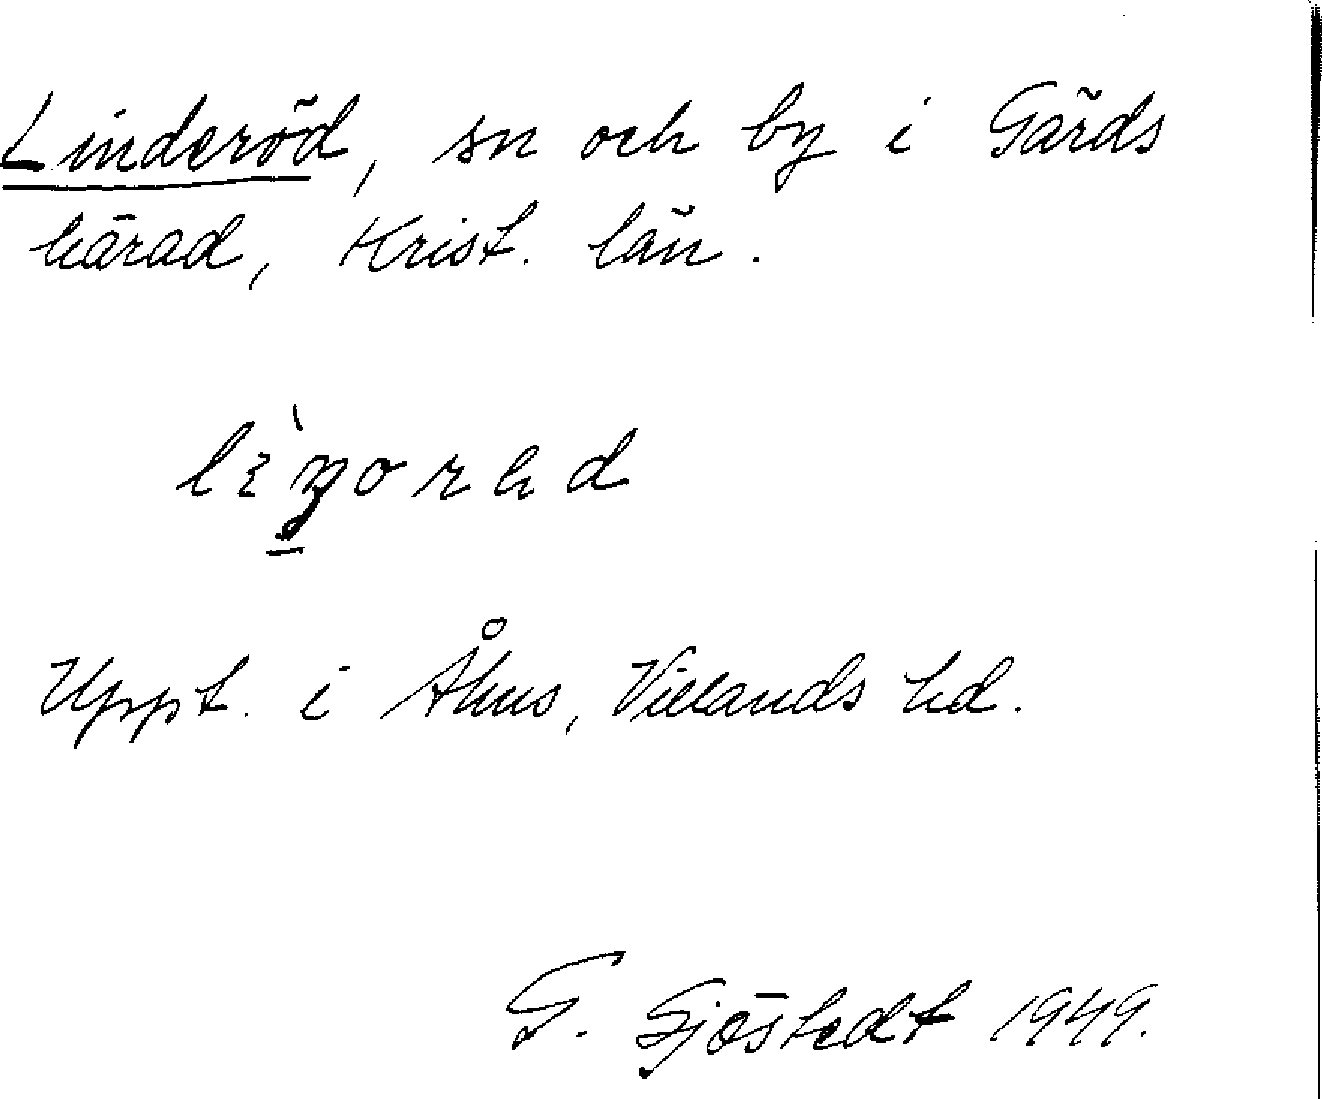 Linderöd, sn och by i Gärds
härad, Krist. län.
Uppt. i Åhus, Villands hd.
G. Sjöstedt 1949.